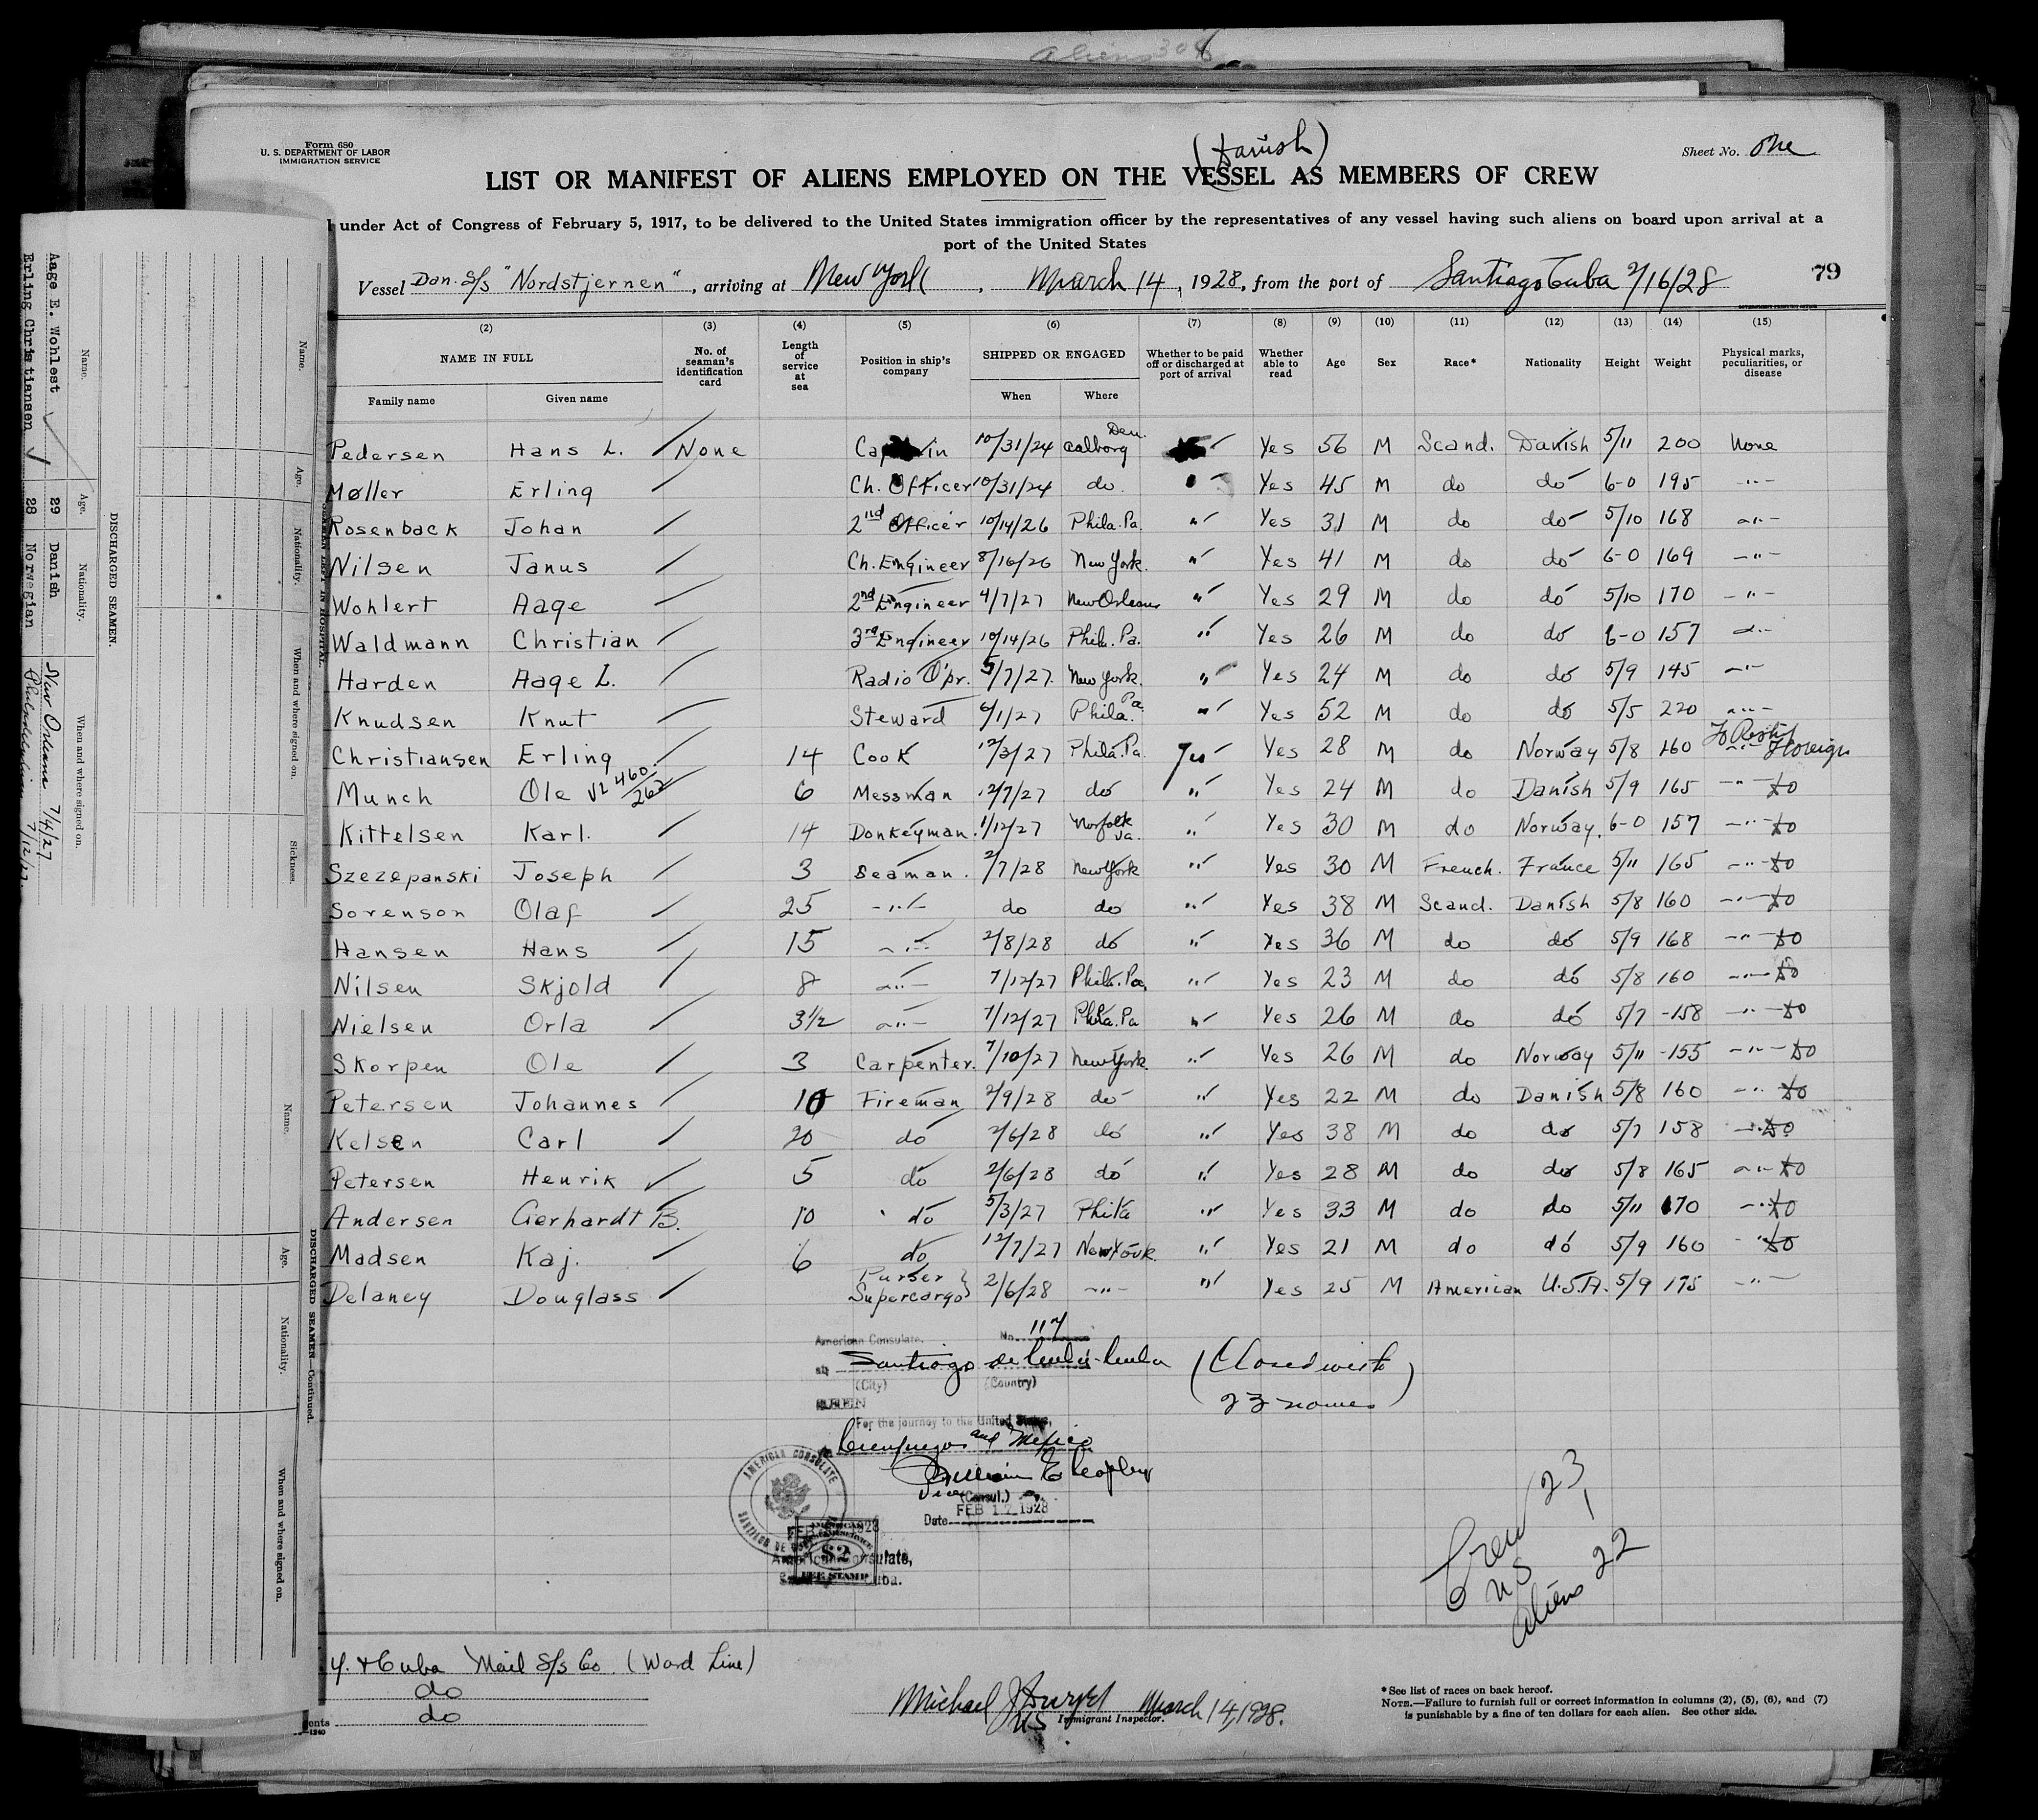 Aliens 30
Form 680
U. S. DEPARTMENT OF LABOR
IMMIGRATION SERVICE
(Danish)
Sheet No. One
LIST OR MANIFEST OF ALIENS EMPLOYED ON THE VESSEL AS MEMBERS OF CREW
under Act of Congress of February 5, 1917, to be delivered to the United States immigration officer by the representatives of any vessel having such aliens on board upon arrival at a
port of the United States
Vessel Dan. S/s "Nordstjernen", arriving at New York, March 14, 1928, from the port of Santiago Cuba 2/16/28
79
(2) (3) (4) (5) (6) (7) (8) (9) (10) (11) (12) (13) (14) (15)
NAME IN FULL No. of seaman's identification card Length of service at sea Position in ship's company SHIPPED OR ENGAGED Whether to be paid off or discharged at port of arrival Whether able to read Age Sex Race* Nationality Height Weight Physical marks, peculiarities, or disease
Family name Given name When Where
Pedersen Hans L. None Captain 10/31/24 Aalborg Den. Yes 56 M Scand. Danish 5/11 200 None
Møller Erling Ch. Officer 10/31/24 do. " Yes 45 M do do 6-0 195 -"-
Rosenback Johan 2nd Officer 10/14/26 Phila. Pa. " Yes 31 M do do 5/10 168 -"-
Nilsen Janus Ch. Engineer 8/16/26 New York. " Yes 41 M do do 6-0 169 -"-
Wohlert Aage 2nd Engineer 4/7/27 New Orleans " Yes 29 M do do 5/10 170 -"-
Waldmann Christian 3rd Engineer 10/14/26 Phila. Pa. " Yes 26 M do do 6-0 157 -"-
Harden Aage L. Radio Opr. 5/7/27 New York. " Yes 24 M do do 5/9 145 -"-
Knudsen Knut Steward 6/1/27 Phila. Pa. " Yes 52 M do do 5/5 220 -"-
Christiansen Erling 14 Cook 12/3/27 Phila. Pa. Yes Yes 28 M do Norway 5/8 160 -"- To Reship Foreign
Munch Ole 460/262 6 Messman 12/7/27 do " Yes 24 M do Danish 5/9 165 -"- do
Kittelsen Karl. 14 Donkeyman. 1/12/27 Norfolk Va. " Yes 30 M do Norway. 6-0 157 -"- do
Szezepanski Joseph 3 Seaman. 2/7/28 New York " Yes 30 M French. France 5/11 165 -"- do
Sorenson Olaf 25 -"- do do " Yes 38 M Scand. Danish 5/8 160 -"- do
Hansen Hans 15 -"- 2/8/28 do " Yes 36 M do do 5/9 168 -"- do
Nilsen Skjold 8 -"- 7/12/27 Phila. Pa. " Yes 23 M do do 5/8 160 -"- do
Nielsen Orla 3½ -"- 7/12/27 Phila. Pa " Yes 26 M do do 5/7 -158 -"- do
Skorpen Ole 3 Carpenter. 7/10/27 New York. " Yes 26 M do Norway 5/11 -155 -"- do
Petersen Johannes 10 Fireman 2/9/28 do " Yes 22 M do Danish 5/8 160 -"- do
Kelsen Carl 20 do 2/6/28 do " Yes 38 M do do 5/7 158 -"- do
Petersen Henrik 5 do 2/6/28 do " Yes 28 M do do 5/8 165 -"- do
Andersen Gerhardt B. 10 do 5/3/27 Phila " Yes 33 M do do 5/11 170 -"- do
Madsen Kaj. 6 do 12/7/27 New York. " Yes 21 M do do 5/9 160 -"- do
Delaney Douglass Purser } Supercargo 2/6/28 -"- " Yes 25 M American U.S.A. 5/9 175 -"-
American Consulate. No. 117
at Santiago de Cuba-Cuba (Closed with
(City) (Country)
23 names)
SEEN
For the journey to the United States,
Cienfuegos and Mexico
Vice (Consul.)
Date FEB 17 1928
AMERICAN CONSULATE
SANTIAGO DE CUBA
AMERICAN
$2
FEE STAMP
American Consulate,
Cuba.
Crew 23
US 1
Aliens 22
Y. & Cuba Mail S/s Co. (Ward Line)
do
do
Michael J. March 14, 1928.
US Immigrant Inspector.
*See list of races on back hereof.
NOTE.—Failure to furnish full or correct information in columns (2), (5), (6), and (7)
is punishable by a fine of ten dollars for each alien. See other side.
DISCHARGED SEAMEN.
Name. Age. Nationality. When and where signed on.
Aage E. Wohlest 29 Danish New Orleans 7/4/27
Erling Christiansen 28 Norwegian Philadelphia 7/12/27.
SEAMEN LEFT IN HOSPITAL.
Name. Age. Nationality. When and where signed on. Sickness.
DISCHARGED SEAMEN—Continued.
Name. Age. Nationality. When and where signed on.